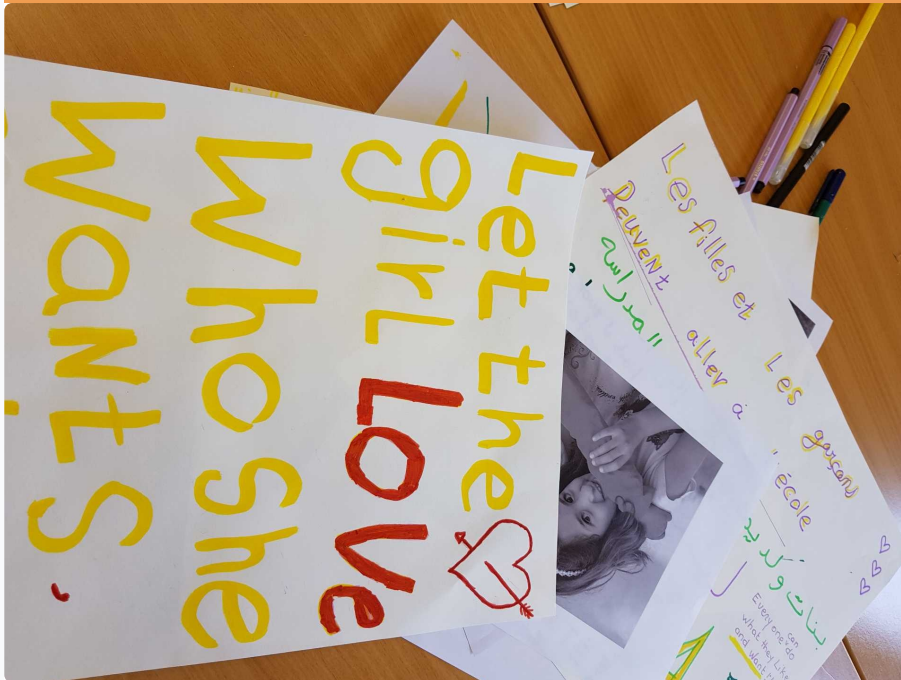 Let the
girl Love
Who She
Wants.
Les filles et Les garçons
Peuvent aller à l'école
المدراسه
بنات و
Everyone can
do
what they Like
and want